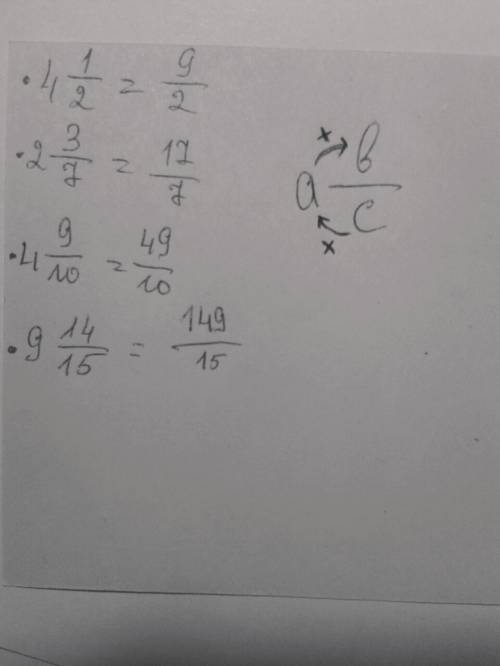 · 4 1/2 = 9/2
· 2 3/7 = 17/7
· 4 9/10 = 49/10
· 9 14/15 = 149/15
x
a b/c
x